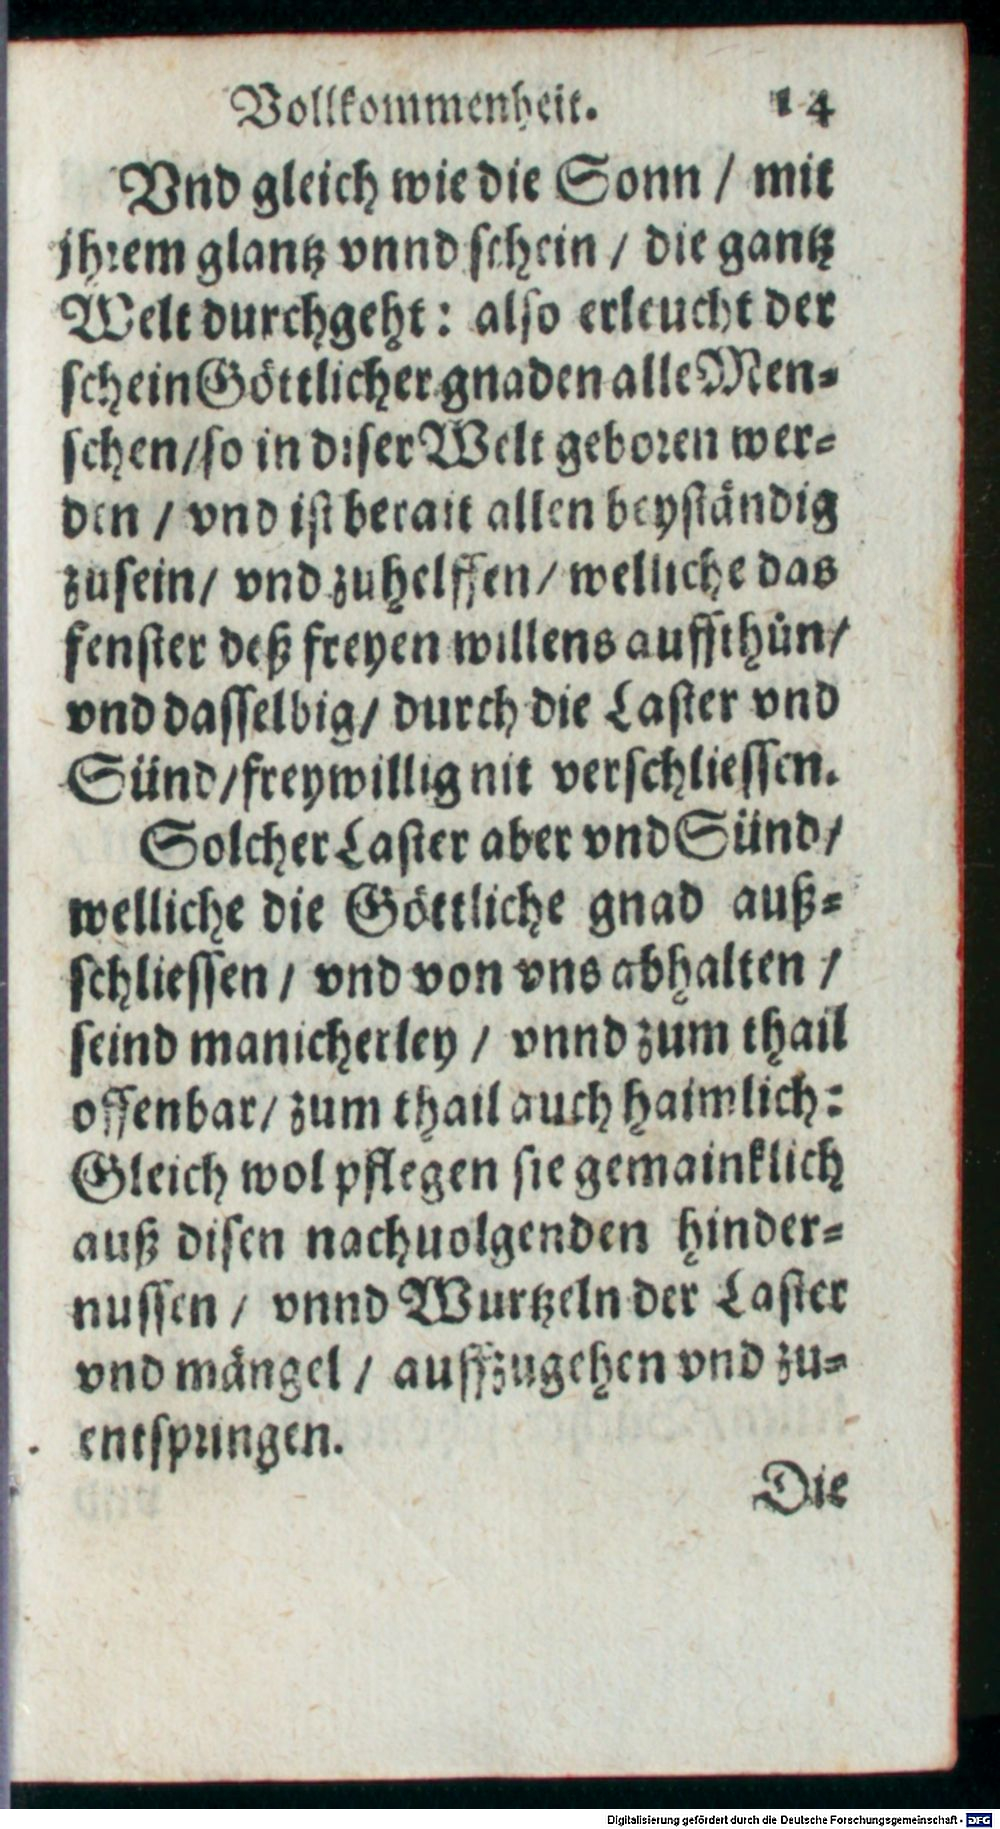 Vollkommenheit. 14
Vnd gleich wie die Sonn / mit
jhrem glantz vnnd schein / die gantz
Welt durchgeht: also erleucht der
schein Göttlicher gnaden alle Men-
schen / so in diser Welt geboren wer-
den / vnd ist berait allen beyständig
zusein / vnd zuhelffen / welliche das
fenster deß freyen willens auffthůn /
vnd dasselbig / durch die Laster vnd
Sünd / freywillig nit verschliessen.
Solcher Laster aber vnd Sünd /
welliche die Göttliche gnad auß-
schliessen / vnd von vns abhalten /
seind manicherley / vnnd zum thail
offenbar / zum thail auch haimlich:
Gleich wol pflegen sie gemainklich
auß disen nachuolgenden hinder-
nussen / vnnd Wurtzeln der Laster
vnd mängel / auffzugehen vnd zu-
entspringen.
Die
Digitalisierung gefördert durch die Deutsche Forschungsgemeinschaft - DFG